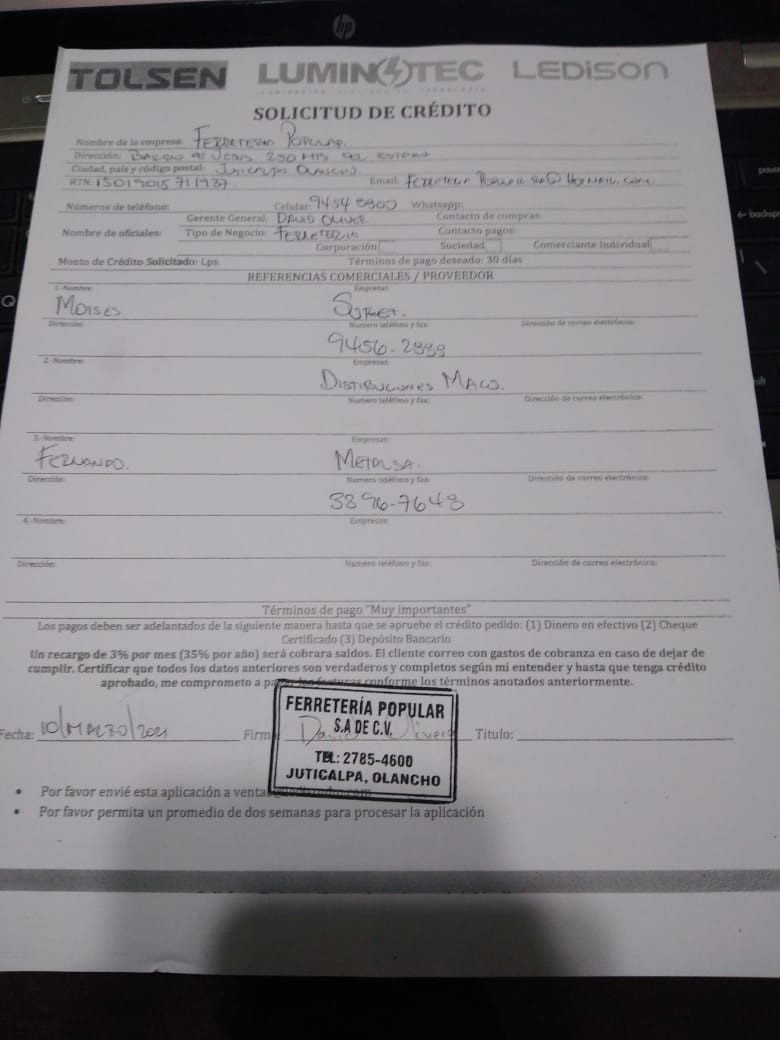 hp
TOLSEN LUMINOTEC LEDISON
SOLICITUD DE CRÉDITO
Nombre de la empresa: FERRETERIA POPULAR.
Dirección: BARRIO DE JESUS, 250 MTS DEL
Ciudad, país y código postal: JUTICALPA OLANCHO
RTN: Email: FERRETERIA HOTMAIL.COM.
Números de teléfono: Celular: Whatsapp:
Gerente General: DAVID OLIVER Contacto de compras:
Nombre de oficiales: Tipo de Negocio: FERRETERIA Contacto pagos:
Corporación Sociedad Comerciante Individual
Monto de Crédito Solicitado: Lps. Términos de pago deseado: 30 días
REFERENCIAS COMERCIALES / PROVEEDOR
1.-Nombre: Empresas:
MOISES
Dirección: Numero teléfono y fax: Dirección de correo electrónico:
2.-Nombre: Empresas:
DISTRIBUCIONES MACO.
Dirección: Numero teléfono y fax: Dirección de correo electrónico:
3.-Nombre: Empresas:
FERNANDO. METALSA.
Dirección: Numero teléfono y fax: Dirección de correo electrónico:
3396-7648
4.-Nombre: Empresas:
Dirección: Numero teléfono y fax: Dirección de correo electrónico:
Términos de pago "Muy importantes"
Los pagos deben ser adelantados de la siguiente manera hasta que se apruebe el crédito pedido: (1) Dinero en efectivo (2) Cheque
Certificado (3) Depósito Bancario
Un recargo de 3% por mes (35% por año) será cobrara saldos. El cliente correo con gastos de cobranza en caso de dejar de
cumplir. Certificar que todos los datos anteriores son verdaderos y completos según mi entender y hasta que tenga crédito
aprobado, me comprometo a pagar las facturas conforme los términos anotados anteriormente.
FERRETERÍA POPULAR
S.A DE C.V.
Fecha: 10/MARZO/2021 Firma David Titulo:
TEL: 2785-4600
JUTICALPA, OLANCHO
• Por favor envié esta aplicación a
• Por favor permita un promedio de dos semanas para procesar la aplicación